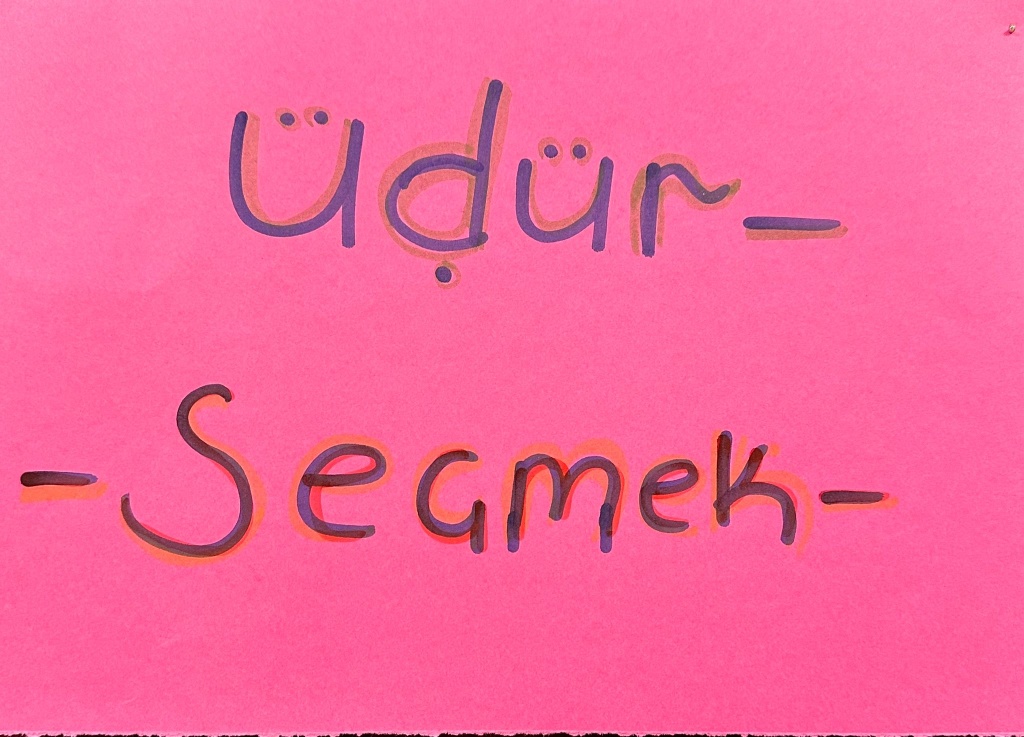 üḍür-
-Seçmek-